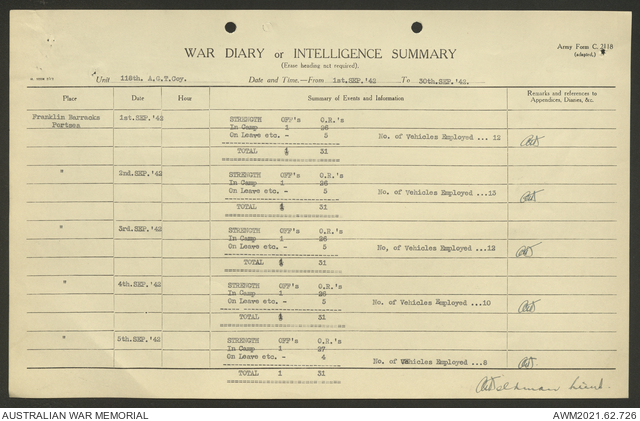 Army Form C. 2118
(adapted.)
WAR DIARY or INTELLIGENCE SUMMARY
(Erase heading not required).
Unit 118th. A.G.T.Coy. Date and Time.—From 1st.SEP.'42 To 30th.SEP.'42.
Place Date Hour Summary of Events and Information Remarks and references to Appendices, Diaries, &c.
Franklin Barracks 1st.SEP.'42 STRENGTH OFF's O.R.'s
Portsea In Camp 1 26
On Leave etc. - 5 No. of Vehicles Employed ... 12
TOTAL 1 31
" 2nd.SEP.'42 STRENGTH OFF's O.R.'s
In Camp 1 26
On Leave etc. - 5 No. of Vehicles Employed ...13
TOTAL 1 31
" 3rd.SEP.'42 STRENGTH OFF's O.R.'s
In Camp 1 26
On Leave etc. - 5 No. of Vehicles Employed ...12
TOTAL 1 31
" 4th.SEP.'42 STRENGTH OFF's O.R.'s
In Camp 1 26
On Leave etc. - 5 No. of Vehicles Employed ...10
TOTAL 1 31
" 5th.SEP.'42 STRENGTH OFF's O.R.'s
In Camp 1 27
On Leave etc. - 4 No. of Vehicles Employed ...8
TOTAL 1 31
Lieut.
AUSTRALIAN WAR MEMORIAL AWM2021.62.726